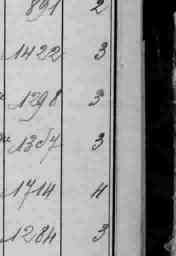 891 2
1422 3
1398 3
1357 3
1714 4
1284 3